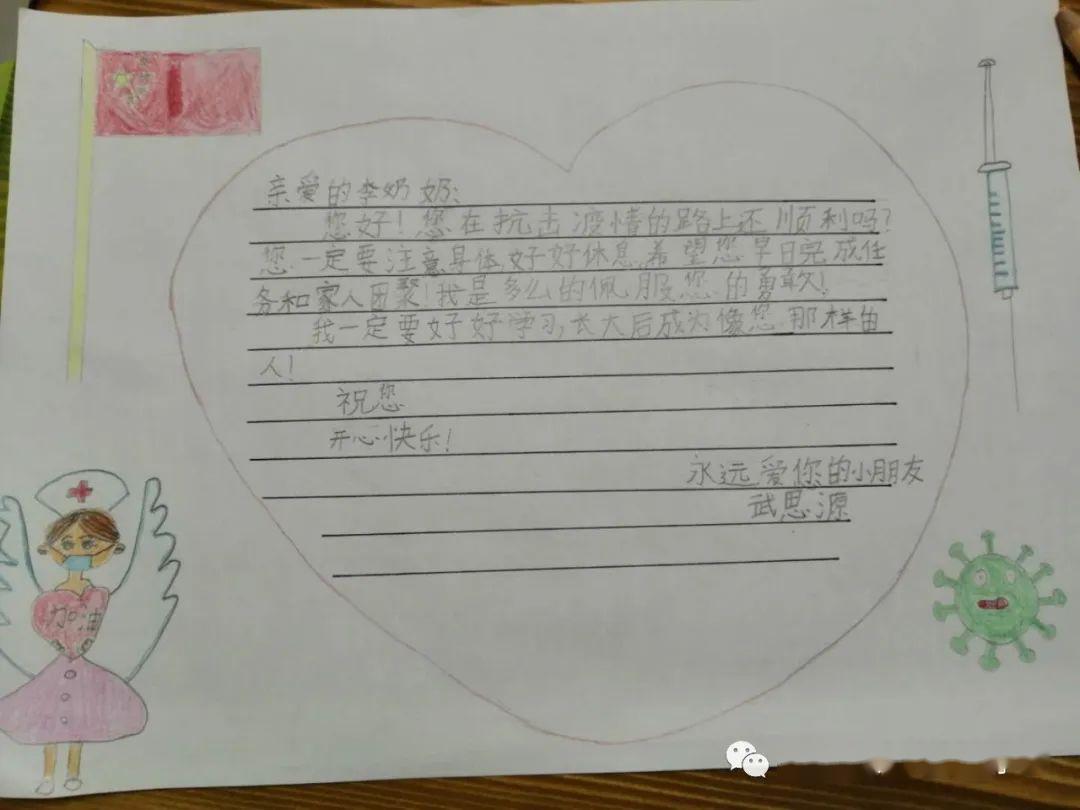 亲爱的李奶奶:
您好!您在抗击疫情的路上还顺利吗?
您一定要注意身体,好好休息,希望您早日完成任
务和家人团聚!我是多么的佩服您的勇敢!
我一定要好好学习,长大后成为像您那样的
人!
祝您
开心快乐!
永远爱您的小朋友
武思源
加油